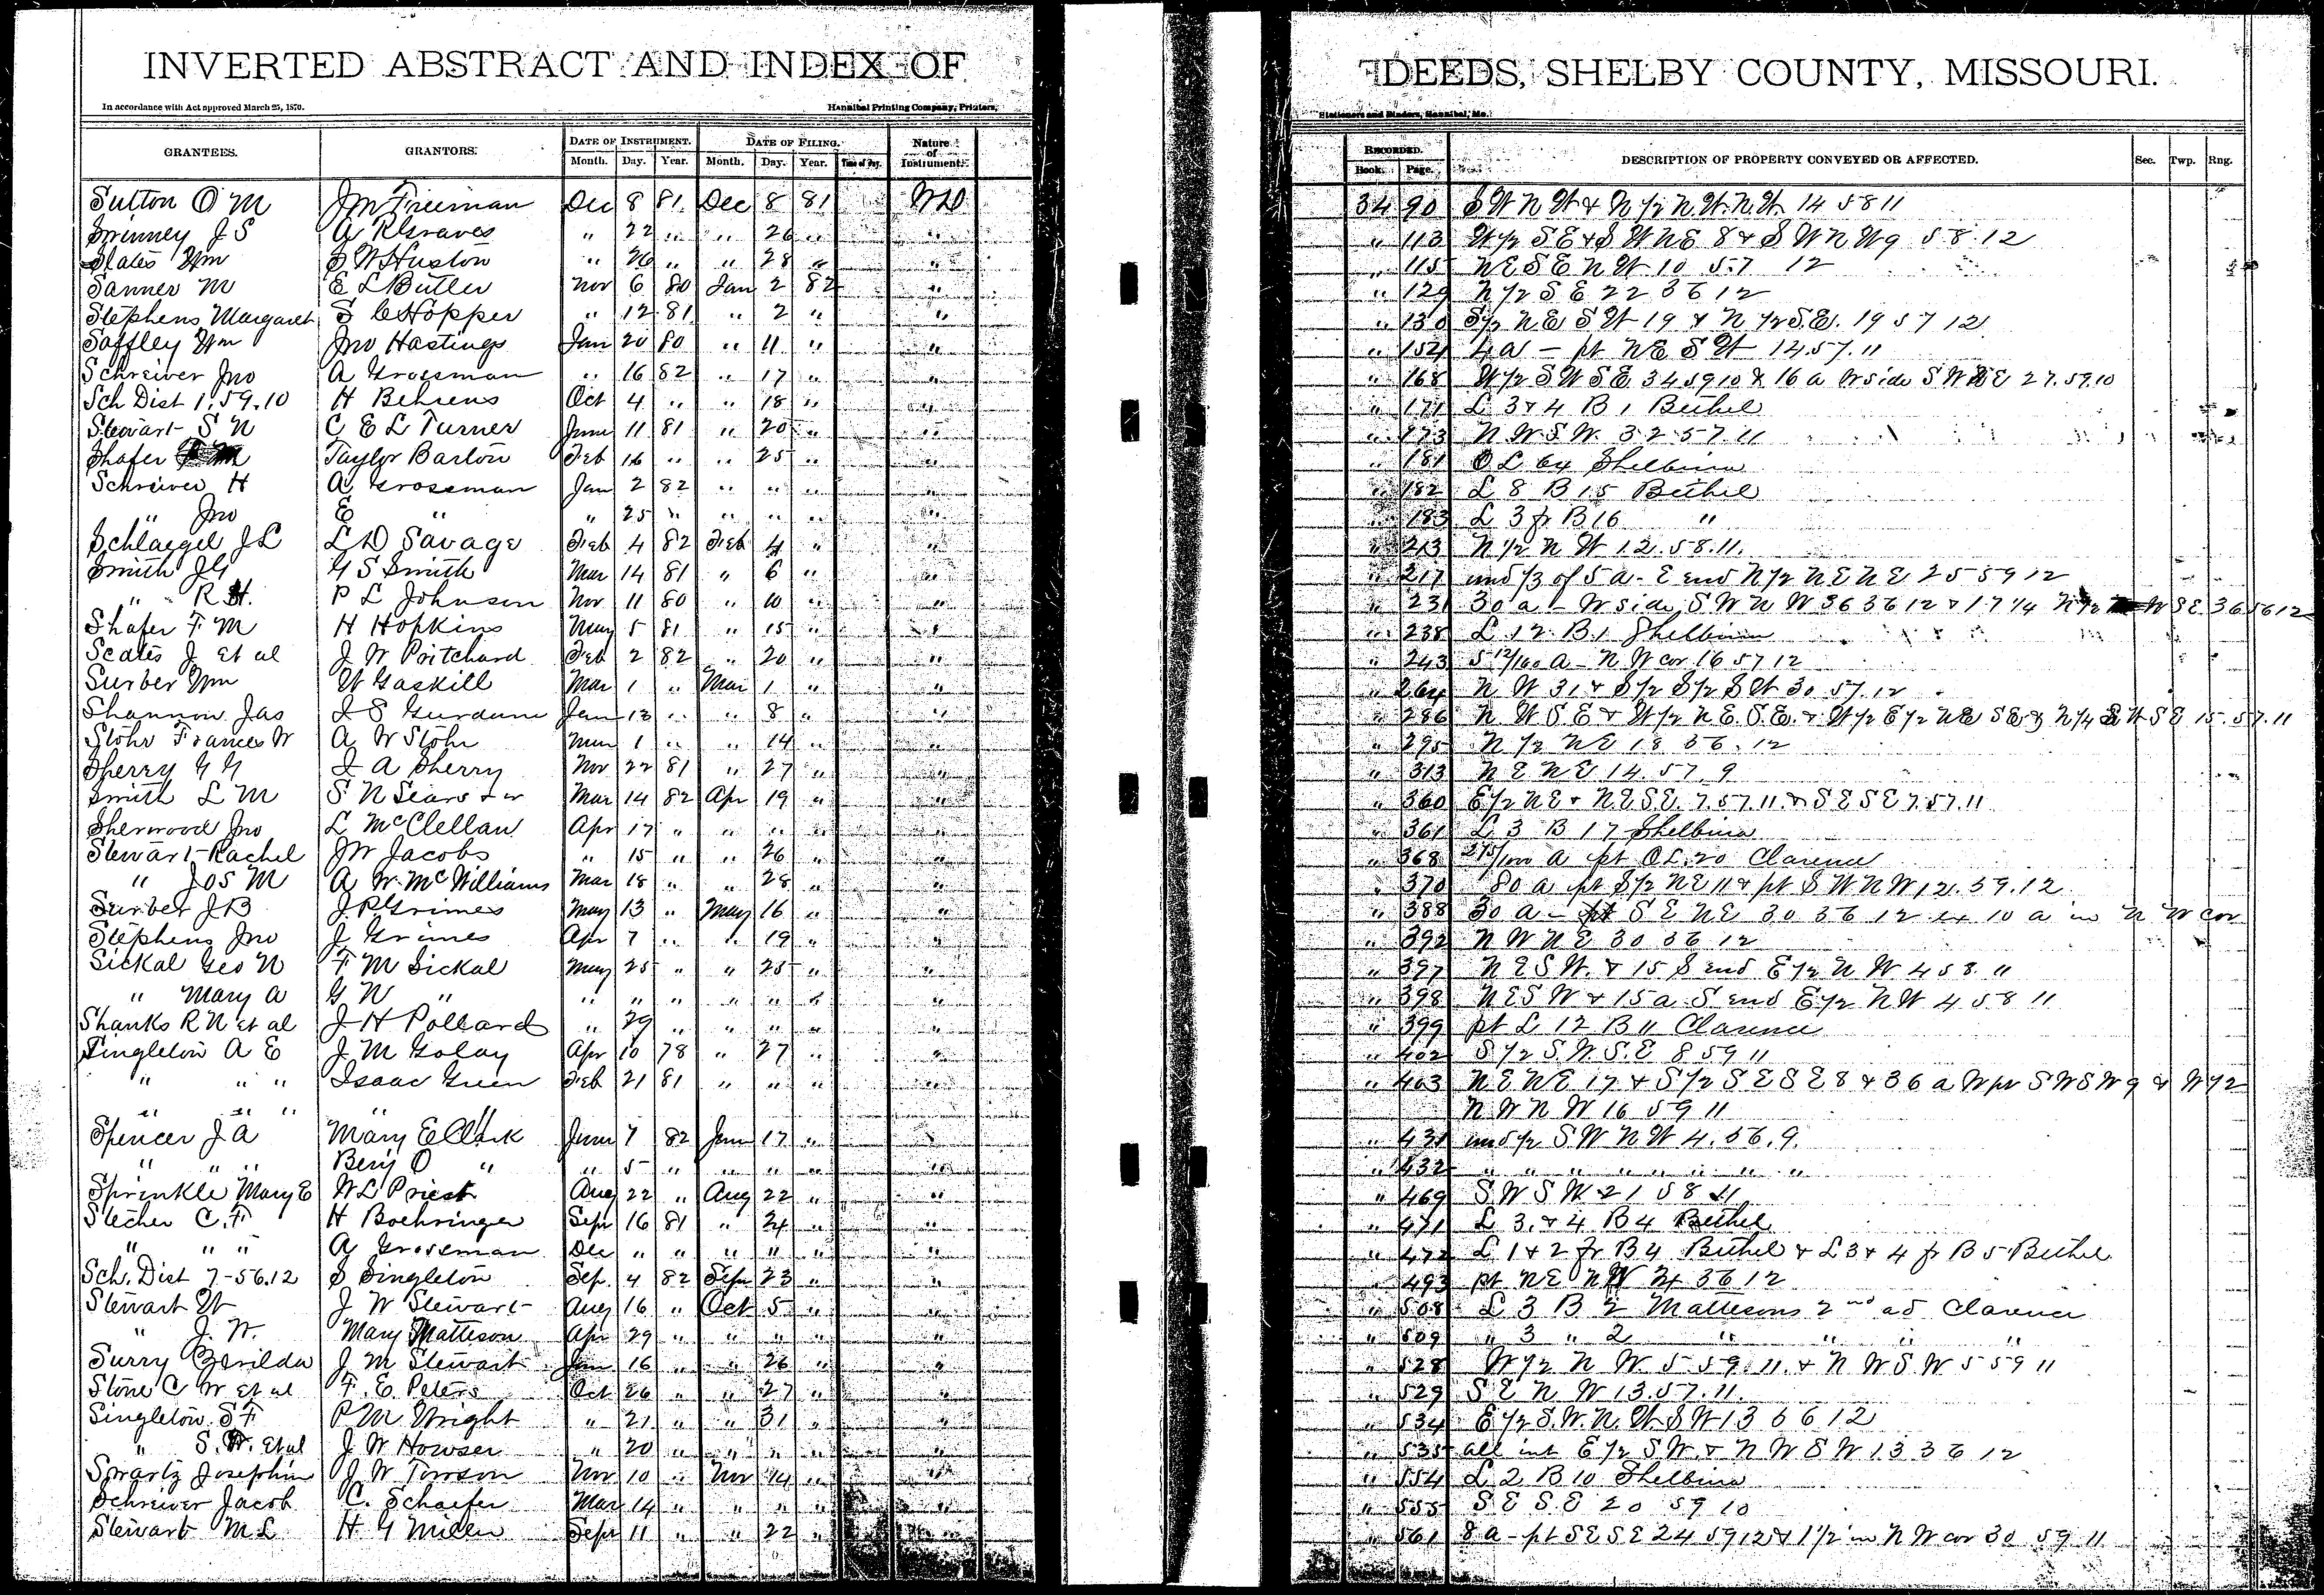 INVERTED ABSTRACT AND INDEX OF DEEDS, SHELBY COUNTY, MISSOURI.
In accordance with Act approved March 25, 1870. Hannibal Printing Company, Printers, Stationers and Binders, Hannibal, Mo.
GRANTEES. GRANTORS. DATE OF INSTRUMENT. Month. Day. Year. DATE OF FILING. Month. Day. Year. Time of Day. Nature of Instrument. RECORDED. Book. Page. DESCRIPTION OF PROPERTY CONVEYED OR AFFECTED. Sec. Twp. Rng.
Sutton O M Jm Freeman Dec 8 81 Dec 8 81 WD 34 90 SW NW & N 1/2 NW. NW. 14 58 11
Swinney J S A R Graves " 22 " " 26 " " " 113 W 1/2 SE & SW NE 8 & SW NW 9 58 12
Slates Wm S W Huston " 26 " " 28 " " " 115 NE SE NW 10 57 12
Sanner M E L Butler Nov 6 80 Jan 2 82 " " 129 N 1/2 SE 22 36 12
Stephens Margaret S C Hopper " 12 81 " 2 " " " 130 S 1/2 NE SW 19 & N 1/2 SE. 19 57 12
Saffley Wm Jno Hastings Jan 20 80 " 11 " " " 154 4 a - pt NE SW 14 57. 11
Schreiver Jno A Grossman " 16 82 " 17 " " " 168 W 1/2 SW SE 34 59 10 & 16 a W side SW NE 27. 59. 10
Sch Dist 1. 59. 10 H Behrens Oct 4 " " 18 " " " 171 L 3 & 4 B 1 Bethel
Stewart S N C E L Turner June 11 81 " 20 " " " 173 NW SW. 32 57. 11
Shafer F M Taylor Barton Feb 16 " " 25 " " " 181 O L 64 Shelbina
Schreiver H A Grossman Jan 2 82 " " " " " 182 L 8 B 15 Bethel
" Jno E " " 25 " " " " " " 183 L 3 fr B 16 "
Schlaegel J L L D Savage Feb 4 82 Feb 4 " " " 213 N 1/2 NW 12. 58. 11.
Smith J G G S Smith Mar 14 81 " 6 " " " 217 und 1/3 of 5 a - E end N 1/2 NE NE 25 59 12
" R H. P L Johnson Nov 11 80 " 10 " " " 231 30 a - W side SW NW 36 36 12 & 17 1/4 N 1/2 W SE 36 56 12
Shafer F M H Hopkins May 5 81 " 15 " " " 238 L 12 B. 1 Shelbina
Scates J et al J W Pritchard Feb 2 82 " 20 " " " 243 5 12/100 a - NW cor 16 57 12
Surber Wm W Gaskill Mar 1 " Mar 1 " " " 264 NW 31 & S 1/2 S 1/2 SW 30 57. 12
Shannon Jas J S Gurdane Jan 13 " " 8 " " " 286 NW SE & W 1/2 NE. SE. & W 1/2 E 1/2 NE SE & N 1/4 SW SE 15. 57. 11
Stohr Frances W A W Stohr Mar 1 " " 14 " " " 295 N 1/2 NE 18 36. 12
Sherry G G J A Sherry Nov 22 81 " 27 " " " 313 NE NE 14. 57. 9
Smith L M S. N Sears & w Mar 14 82 Apr 19 " " " 360 E 1/2 NE & NE SE 7. 57. 11. & SE SE 7. 57. 11
Sherwood Jno L McClellan Apr 17 " " " " " " 361 L 3 B 17 Shelbina
Stewart Rachel JW Jacobs " 15 " " 26 " " " 368 275/1000 a pt O L. 20 Clarence
" Jos M A W. McWilliams Mar 18 " " 28 " " " 370 80 a pt S 1/2 NE 11 & pt SW NW 12. 39. 12
Surber J B J. P Grimes May 13 " May 16 " " " 388 30 a - pt SE NE 30 36 12 ex 10 a in NW cor
Stephens Jno J Grimes Apr 7 " " 19 " " " 392 NW NE 30 36 12
Sickal Geo N F M Sickal May 25 " " 25 " " " 397 NE SW. & 15 S end E 1/2 NW 4 58. 11
" Mary A G N " " " " " " " " " 398 NE SW & 15 a S end E 1/2 NW 4 58 11
Shanks R N et al J H Pollard " 29 " " " " " " 399 pt L 12 B 11 Clarence
Singleton A E J M Golay Apr 10 78 " 27 " " " 402 S 1/2 SW. SE 8 59 11
" " " Isaac Green Feb 21 81 " " " " " 403 NE NE 17 & S 1/2 SE SE 8 & 36 a W pr SW SW 9 & W 1/2
" " " " NW NW 16 59 11
Spencer J A Mary E Clark June 7 82 June 17 " " " 431 und 1/2 SW NW 4. 36. 9.
" " " Benj O " " 5 " " " " " " 432 " " " " " " " "
Sprinkle Mary E W L Priest Aug 22 " Aug 22 " " " 469 SW SW 21 58 11
Stecher C. F H Boehringer Sept 16 81 " 24 " " " 471 L 3. & 4 B 4 Bethel
" " " A Grossman Dec " " " " " " " 472 L 1 & 2 fr B 4 Bethel & L 3 & 4 fr B 5 Bethel
Sch. Dist 7-56. 12 S Singleton Sep. 4 82 Sepr 23 " " " 493 pt NE NW 36 12
Stewart W J W Stewart Aug 16 " Oct 5 " " " 508 L 3 B 2 Mattesons 2nd ad Clarence
" J. W. Mary Matteson Apr 29 " " " " " " 509 " 3 " 2 " " " "
Surry Zerilda J M Stewart Jan 16 " " 26 " " " 528 W 1/2 NW. 5 59. 11. & NW SW 5 59 11
Stone C W et al F. E. Peters Oct 26 " " 27 " " " 529 SE NW 13. 57. 11.
Singleton S F P M Wright " 21 " " 31 " " " 534 E 1/2 SW. NW SW 13 36 12
" S. W. et al J W Howser " 20 " " " " " " 535 all int E 1/2 SW. & NW SW 13 36 12
Swartz Josephine J W Towson Nov 10 " Nov 14 " " " 554 L 2 B 10 Shelbina
Schreiver Jacob C. Schaefer Mar 14 " " " " " " 555 SE SE 20 59 10
Stewart M L H G Miller Sept 11 " " 22 " " " 561 8 a - pt SE SE 24 59 12 & 1 1/2 in NW cor 30 59 11